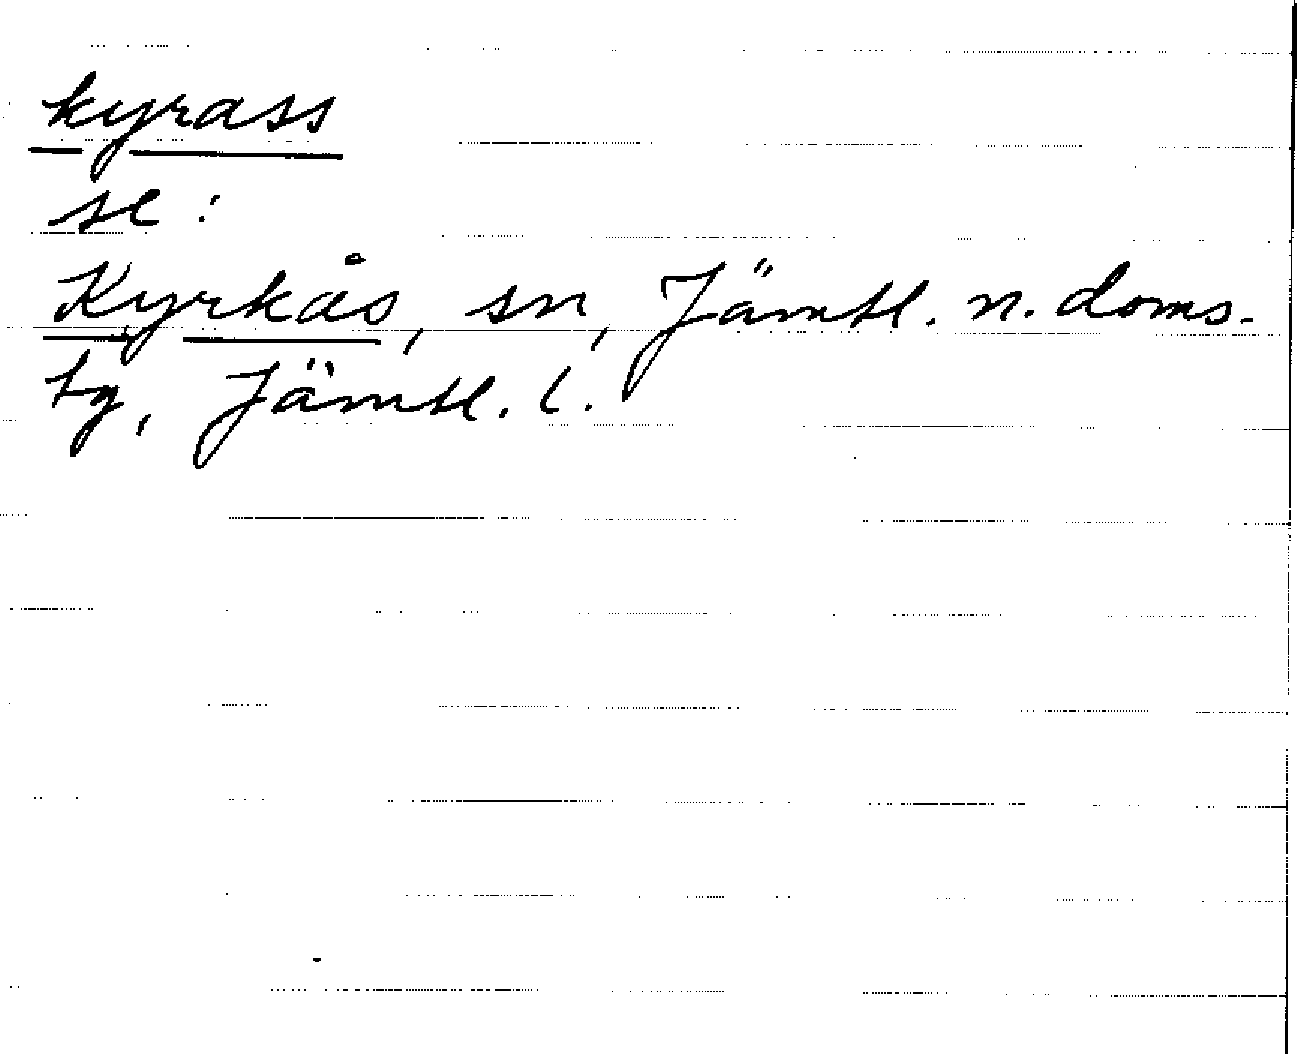 kyrass
se:
Kyrkås, sn, Jämtl. n. doms-
tg, Jämtl. l.